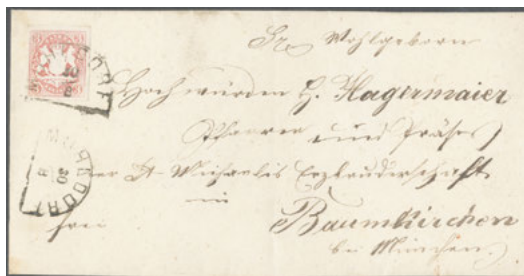 Sr. Wohlgeborn
Hochwürden H. Hagermaier
Pfarrer und Präses
der St. Michaelis Erzbruderschaft
in
Baumkirchen
frei
bei München
30
8